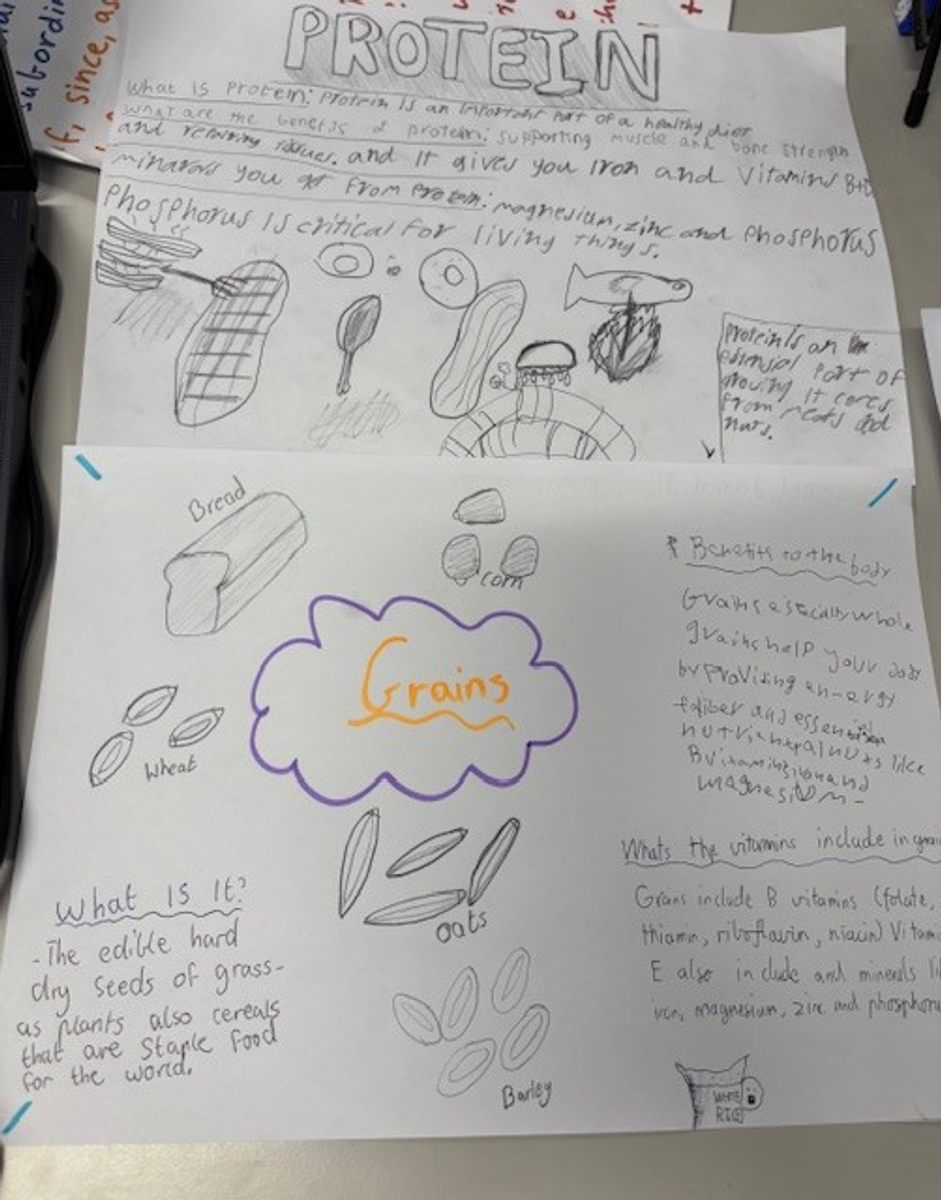 subordin
f, since, as
PROTEIN
What is Protein: Protein is an important part of a healthy diet
What are the benefits of protein: supporting muscle and bone strength
and repairing tissues. and it gives you Iron and Vitamins B+D
minarals you get from Protein: magnesium, zinc and Phosphorus
Phosphorus is critical for living things.
Protein is an
part of
growing It comes
from meats and
nuts.
Bread
corn
Grains
Wheat
oats
Barley
What is It?
- The edible hard
dry seeds of grass-
as plants also cereals
that are staple food
for the world.
Benefits to the body
Grains especially whole
grains help your body
by providing an-ergy
and essential
like
B vitamins iron and
magnesium -
Whats the vitumins include in grai
Grains include B vitamins (folate,
thiamin, riboflavin, niacin) Vitami
E also in clude and minerals li
iron, magnesium, zinc and phosphoru
WHITE
RICE